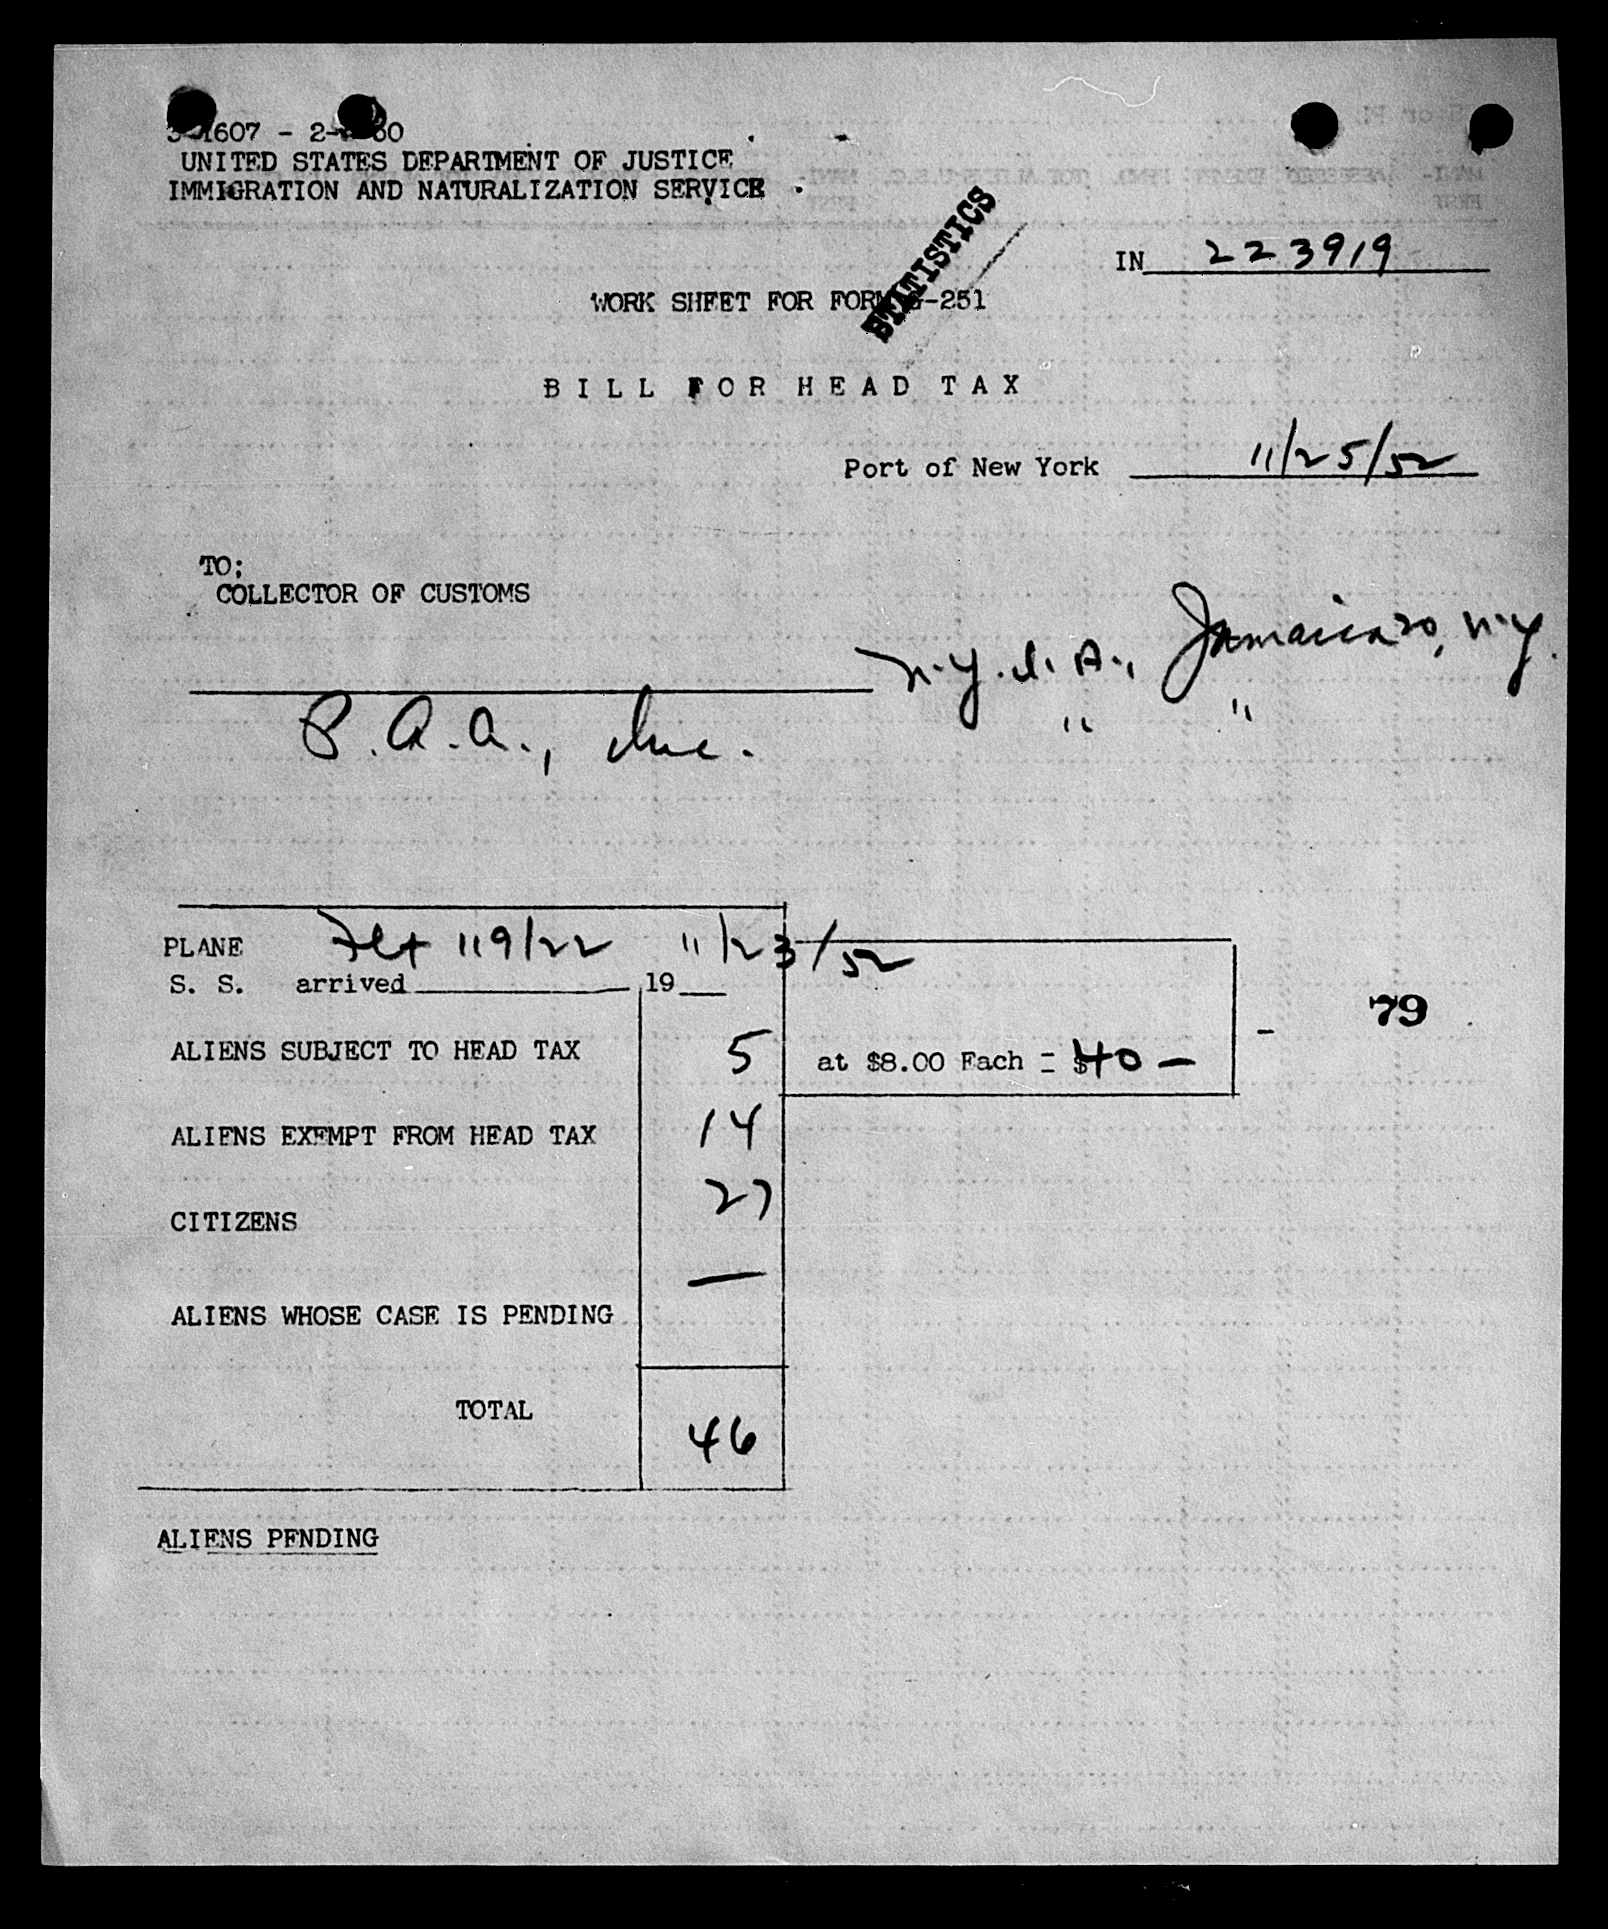 1607 - 2-
UNITED STATES DEPARTMENT OF JUSTICE
IMMIGRATION AND NATURALIZATION SERVICE
STATISTICS
IN 223919
WORK SHEET FOR FORM G-251
BILL FOR HEAD TAX
Port of New York 11/25/52
TO:
COLLECTOR OF CUSTOMS
N.Y.I.A., Jamaica 20, N.Y.
P.A.A., Inc. " "
PLANE Flt 119/22 11/23/52
S. S. arrived 19
79
ALIENS SUBJECT TO HEAD TAX 5 at $8.00 Each = $40 —
ALIENS EXEMPT FROM HEAD TAX 14
CITIZENS 27
ALIENS WHOSE CASE IS PENDING —
TOTAL 46
ALIENS PENDING